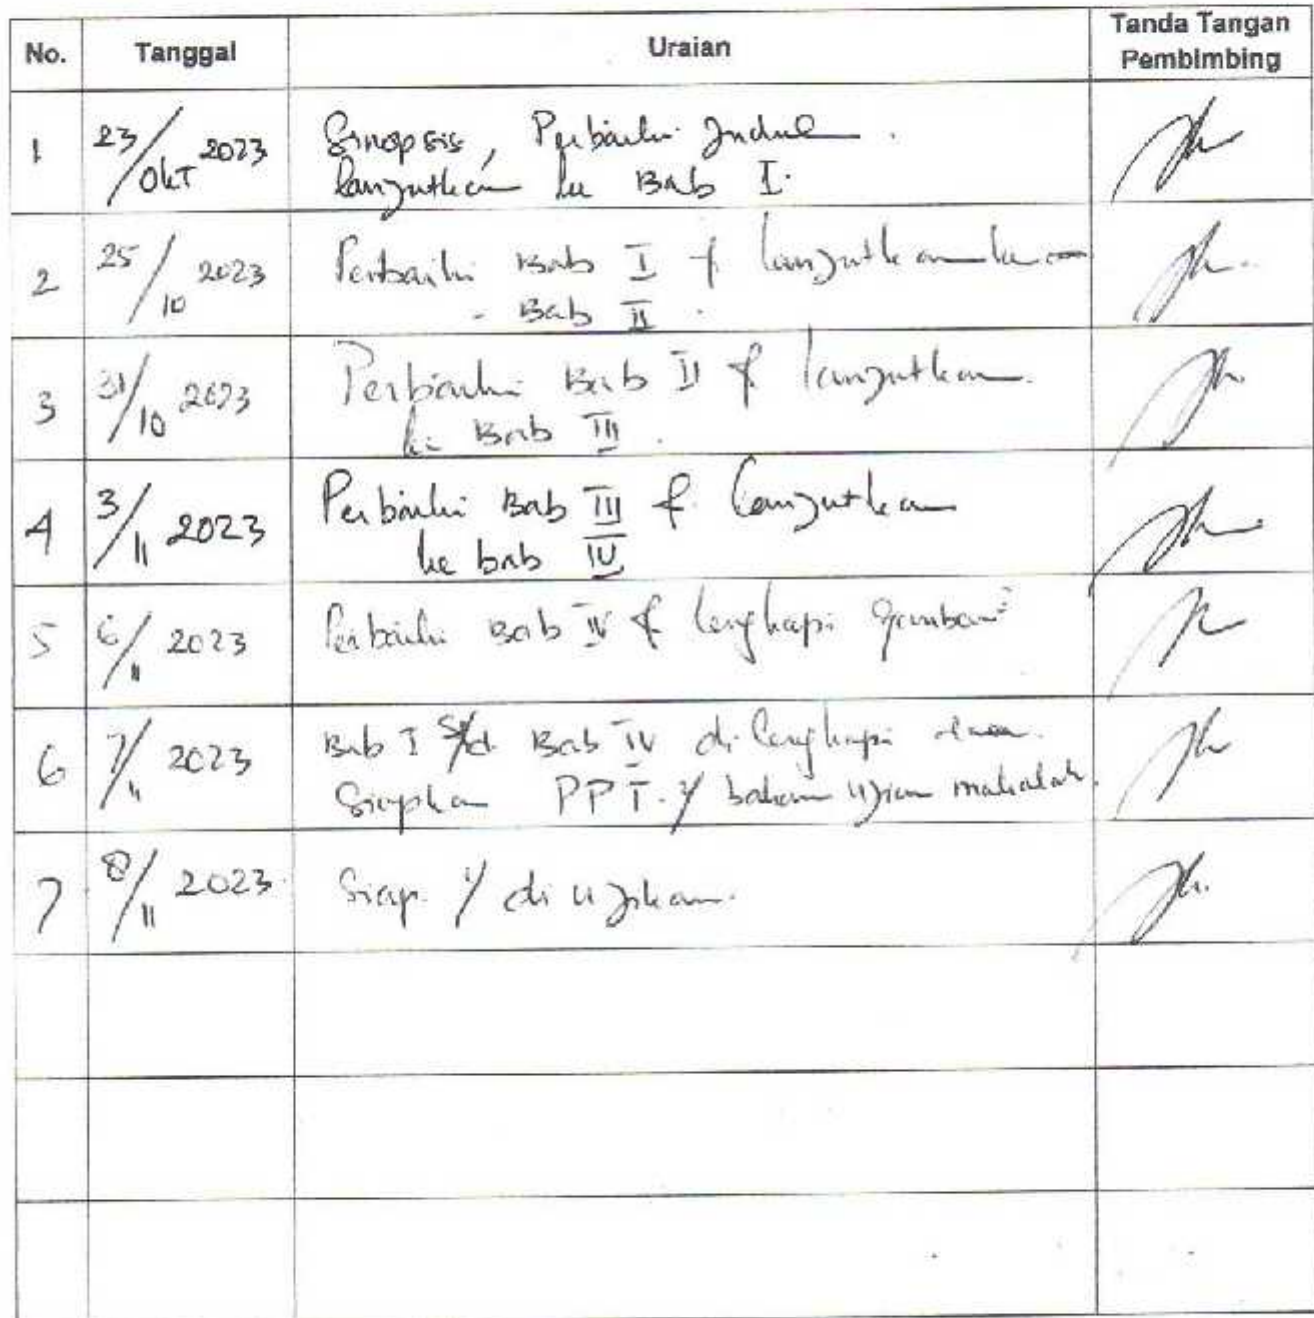 No. Tanggal Uraian Tanda Tangan
Pembimbing
1 23/OKT 2023 Sinopsis, Perbaiki Judul.
lanjutkan ke Bab I.
2 25/10 2023 Perbaiki Bab I & lanjutkan ke
- Bab II.
3 31/10 2023 Perbaiki Bab II & lanjutkan.
ke Bab III.
4 3/11 2023 Perbaiki Bab III & lanjutkan
ke bab IV
5 6/11 2023 Perbaiki Bab IV & lengkapi gambar²
6 7/11 2023 Bab I s/d Bab IV dilengkapi
Siapkan PPT. y/ bahan ujian makalah.
7 8/11 2023 Siap. y/ di ujikan.